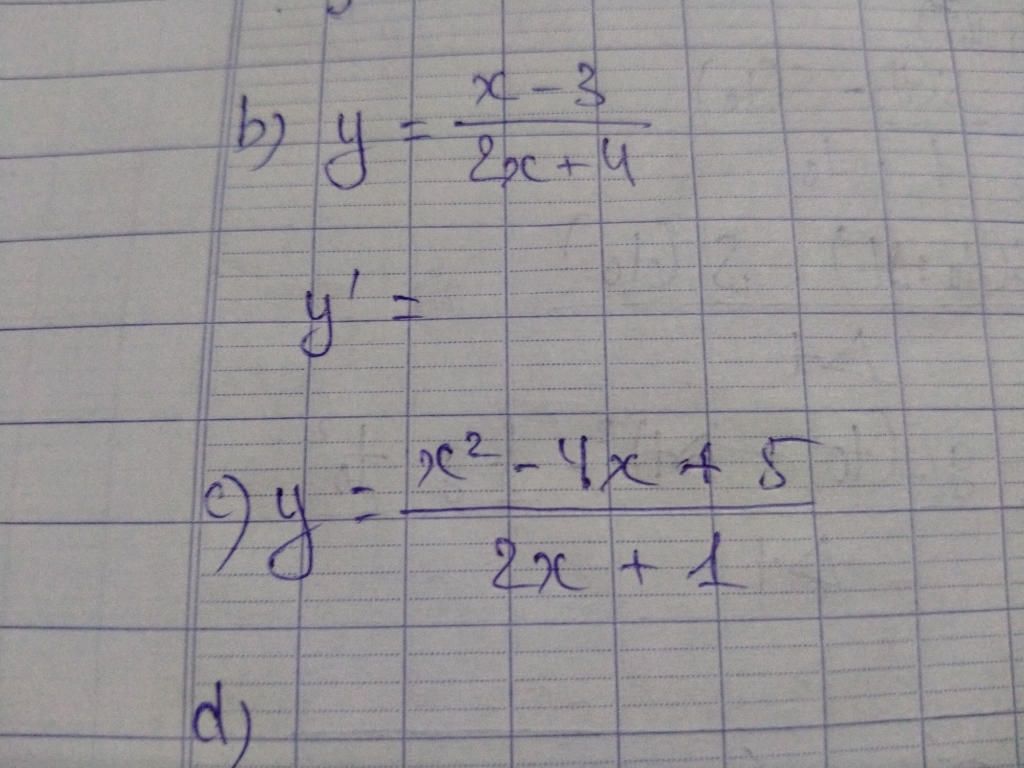 b) y = \frac{x - 3}{2x + 4}
y' =
c) y = \frac{x² - 4x + 5}{2x + 1}
d)